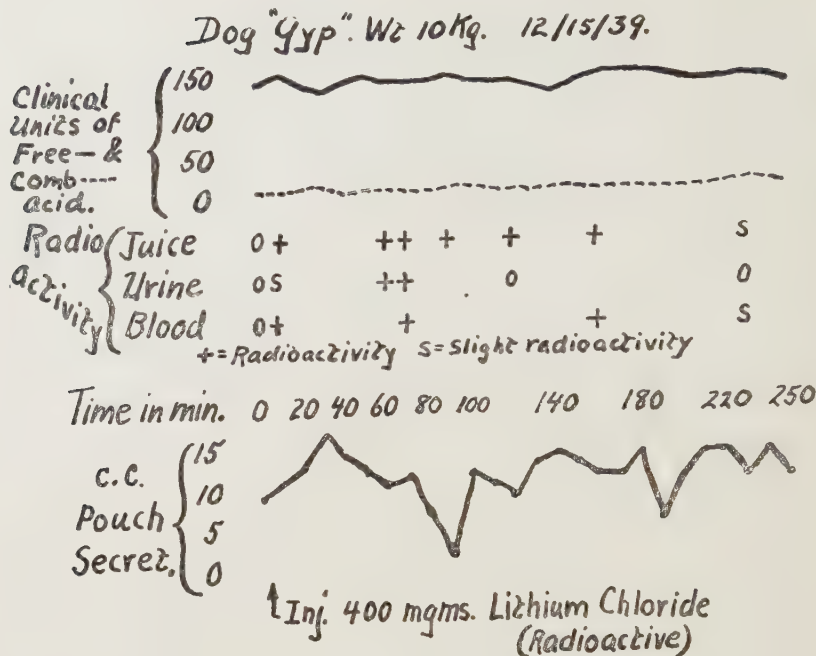 Dog "Gyp". Wt 10 Kg. 12/15/39.
Clinical
Units of
Free — &
Comb ----
acid.
150
100
50
0
Radio
activity
Juice 0 + ++ + + + s
Urine 0 s ++ 0 0
Blood 0 + + + s
+ = Radioactivity s = Slight radioactivity
Time in min. 0 20 40 60 80 100 140 180 220 250
c.c.
Pouch
Secret.
15
10
5
0
Inj. 400 mgms. Lithium Chloride
(Radioactive)